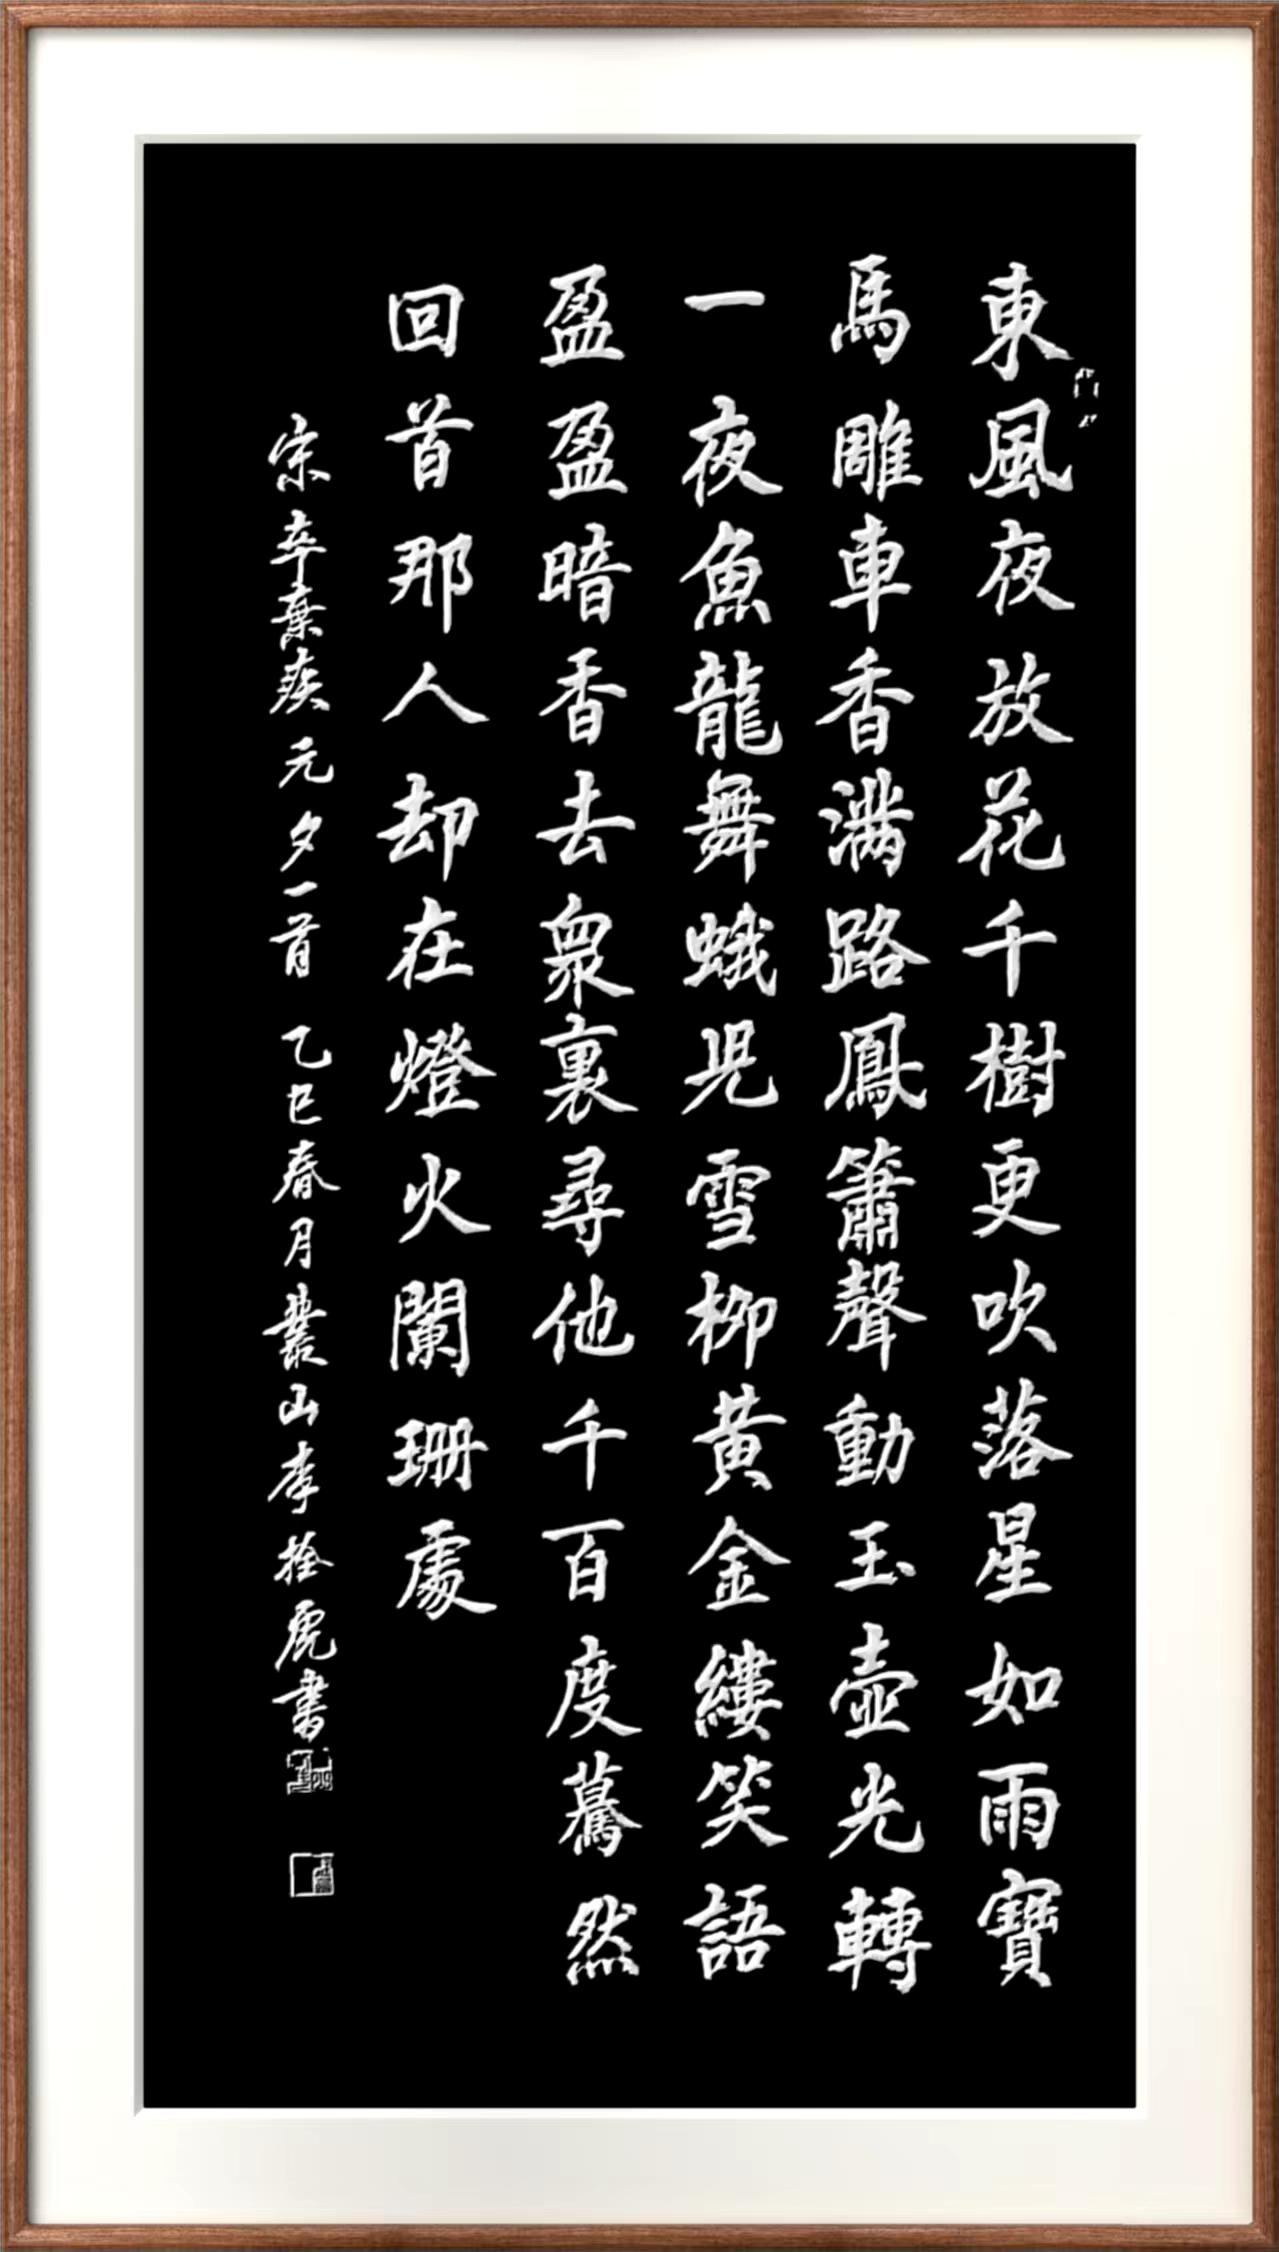 東風夜放花千樹更吹落星如雨寶
馬雕車香滿路鳳簫聲動玉壺光轉
一夜魚龍舞蛾児雪柳黄金縷笑語
盈盈暗香去衆裏尋他千百度驀然
回首那人却在燈火闌珊處
宋辛棄疾元夕一首 乙巳春月叢山李拴虎書